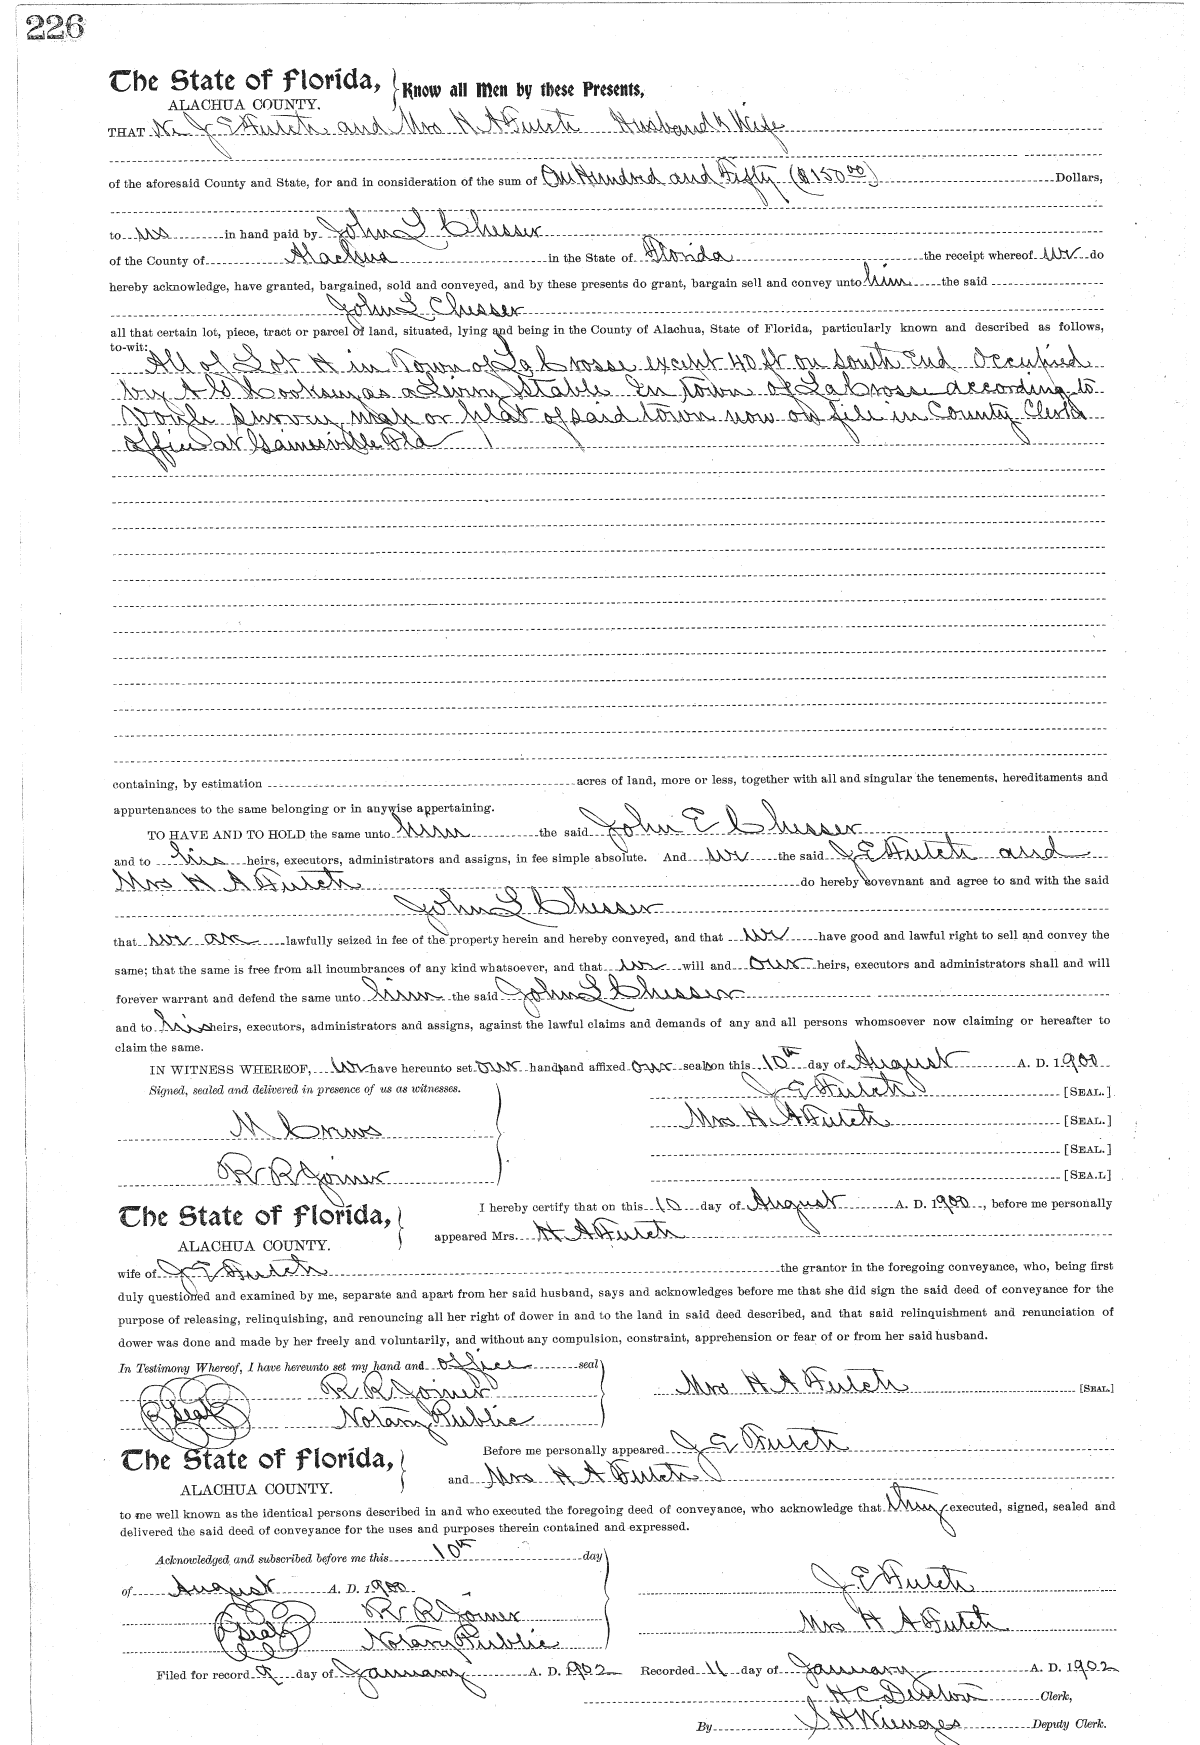 226
The State of Florida, Know all Men by these Presents,
ALACHUA COUNTY.
THAT We J E Futch and Mrs H A Futch Husband & Wife
of the aforesaid County and State, for and in consideration of the sum of One Hundred and Fifty ($150.00) Dollars,
to us in hand paid by John L Chesser
of the County of Alachua in the State of Florida the receipt whereof we do
hereby acknowledge, have granted, bargained, sold and conveyed, and by these presents do grant, bargain sell and convey unto him the said
John L Chesser
all that certain lot, piece, tract or parcel of land, situated, lying and being in the County of Alachua, State of Florida, particularly known and described as follows,
to-wit:
All of Lot H in Town of La Crosse except 40 ft on South End Occupied
by A G Cooksey as a Livery Stable In town of La Crosse according to
survey map or plat of said town now on file in County Clerks
office at Gainesville Fla
containing, by estimation acres of land, more or less, together with all and singular the tenements, hereditaments and
appurtenances to the same belonging or in anywise appertaining.
TO HAVE AND TO HOLD the same unto him the said John E Chesser
and to his heirs, executors, administrators and assigns, in fee simple absolute. And we the said J E Futch and
Mrs H A Futch do hereby covevnant and agree to and with the said
John L Chesser
that we are lawfully seized in fee of the property herein and hereby conveyed, and that we have good and lawful right to sell and convey the
same; that the same is free from all incumbrances of any kind whatsoever, and that we will and our heirs, executors and administrators shall and will
forever warrant and defend the same unto him the said John L Chesser
and to his heirs, executors, administrators and assigns, against the lawful claims and demands of any and all persons whomsoever now claiming or hereafter to
claim the same.
IN WITNESS WHEREOF, We have hereunto set our hands and affixed our seals on this 10th day of August A. D. 1900
Signed, sealed and delivered in presence of us as witnesses. J E Futch [SEAL.]
M Crews Mrs H A Futch [SEAL.]
[SEAL.]
R R Joiner [SEA.L]
The State of Florida, I hereby certify that on this 10 day of August A. D. 1900, before me personally
ALACHUA COUNTY. appeared Mrs. H A Futch
wife of J E Futch the grantor in the foregoing conveyance, who, being first
duly questioned and examined by me, separate and apart from her said husband, says and acknowledges before me that she did sign the said deed of conveyance for the
purpose of releasing, relinquishing, and renouncing all her right of dower in and to the land in said deed described, and that said relinquishment and renunciation of
dower was done and made by her freely and voluntarily, and without any compulsion, constraint, apprehension or fear of or from her said husband.
In Testimony Whereof, I have hereunto set my hand and office seal
R R Joiner Mrs H A Futch [SEAL.]
Seal Notary Public
The State of Florida, Before me personally appeared J E Futch
ALACHUA COUNTY. and Mrs H A Futch
to me well known as the identical persons described in and who executed the foregoing deed of conveyance, who acknowledge that they executed, signed, sealed and
delivered the said deed of conveyance for the uses and purposes therein contained and expressed.
Acknowledged and subscribed before me this 10th day
of August A. D. 1900 J E Futch
R R Joiner
Seal Notary Public Mrs H A Futch
Filed for record 9 day of January A. D. 1902 Recorded 11 day of January A. D. 1902
H C Denton Clerk,
By S H Wienges Deputy Clerk.